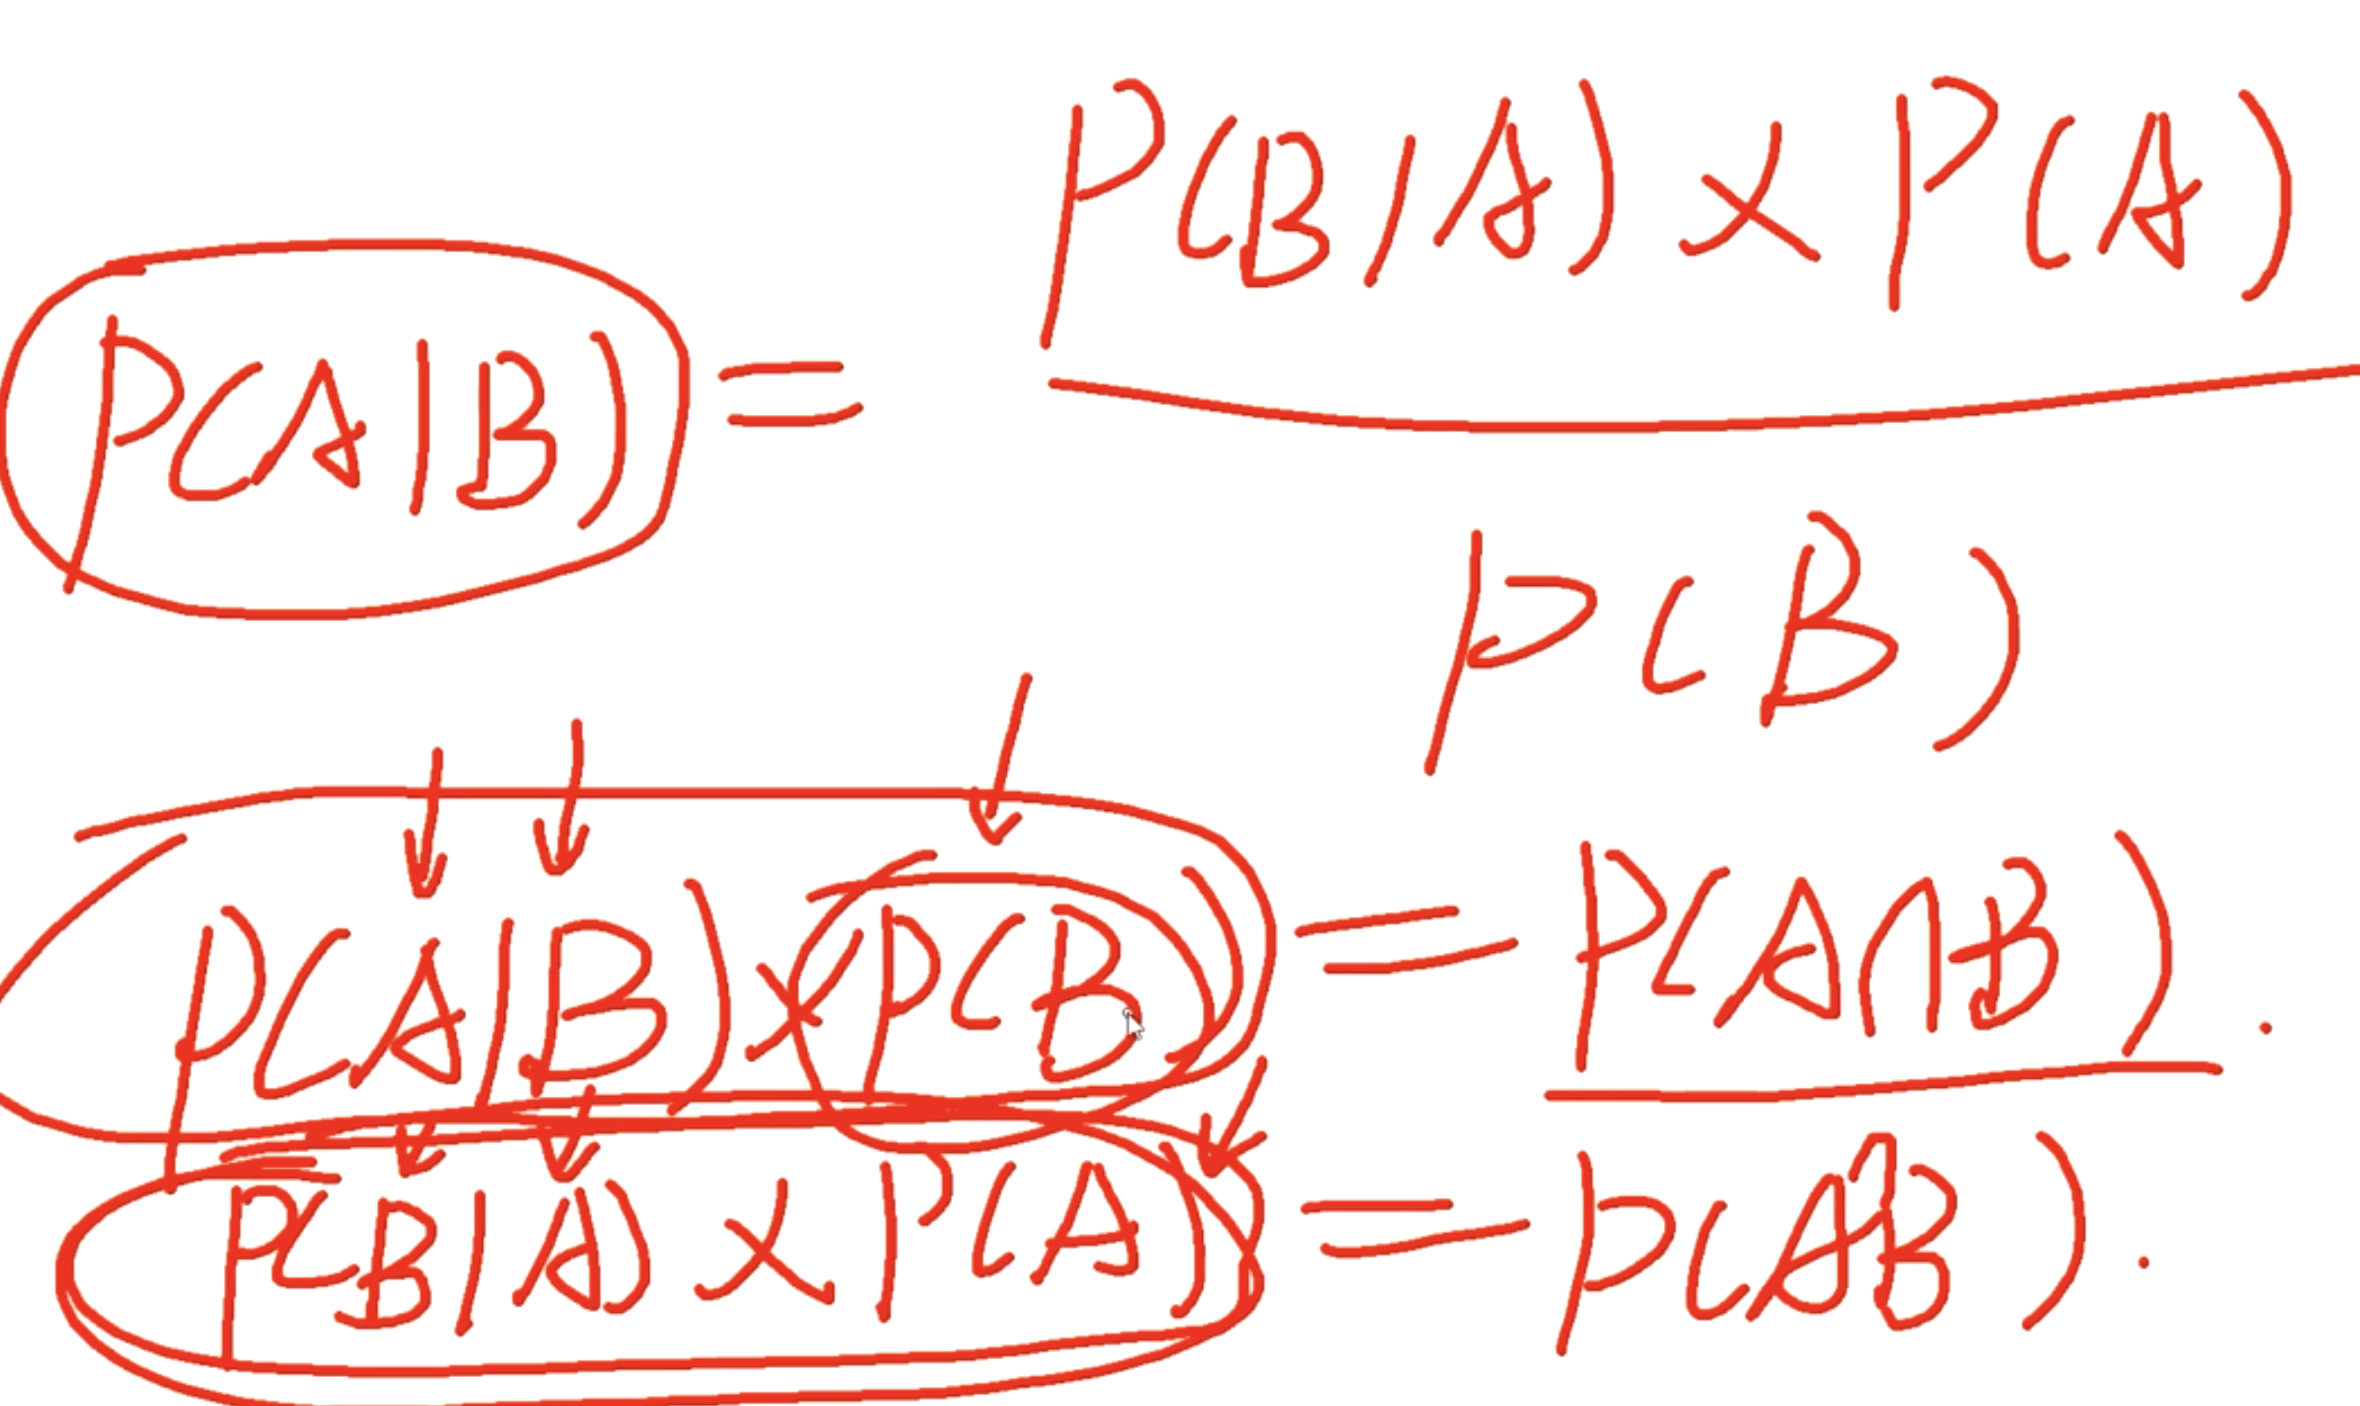 P(B|A) × P(A)
P(A|B) =
P(B)
P(A|B) × P(B) = P(A∩B).
P(B|A) × P(A) = P(A∩B).